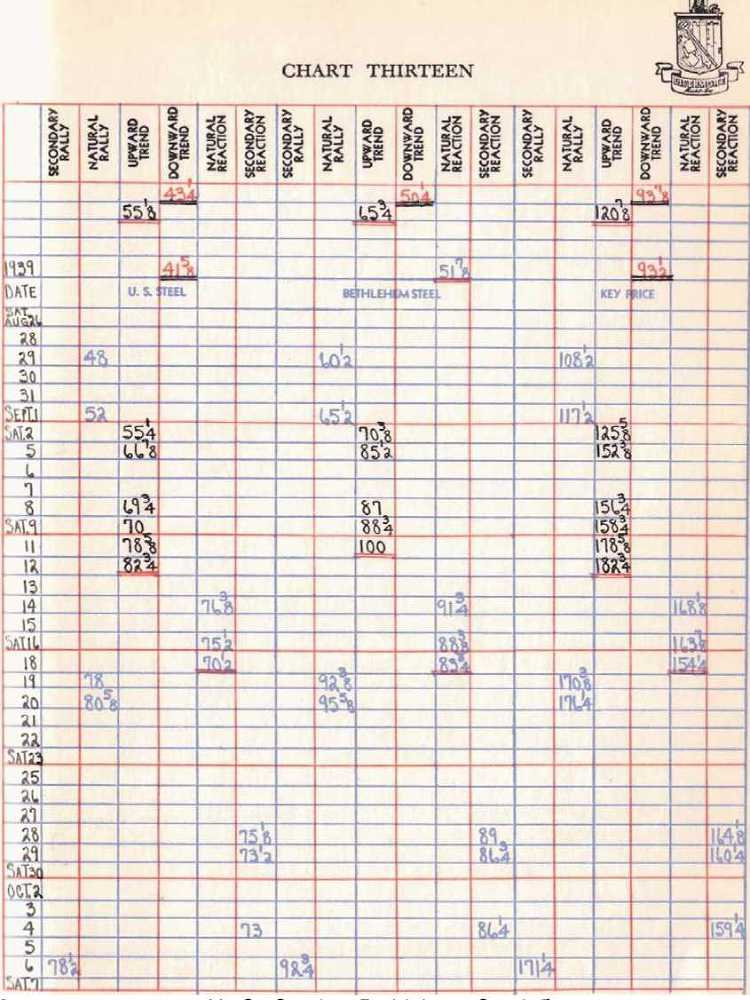 LIVERMORE
CHART THIRTEEN
SECONDARY RALLY NATURAL RALLY UPWARD TREND DOWNWARD TREND NATURAL REACTION SECONDARY REACTION SECONDARY RALLY NATURAL RALLY UPWARD TREND DOWNWARD TREND NATURAL REACTION SECONDARY REACTION SECONDARY RALLY NATURAL RALLY UPWARD TREND DOWNWARD TREND NATURAL REACTION SECONDARY REACTION
43 1/4 50 1/4 93 7/8
55 1/8 65 3/4 120 7/8
1939 41 5/8 51 7/8 93 1/2
DATE U. S. STEEL BETHLEHEM STEEL KEY PRICE
SAT. AUG 26
28
29 48 60 1/2 108 1/2
30
31
SEPT.1 52 65 1/2 117 1/2
SAT.2 55 1/4 70 3/8 125 5/8
5 66 7/8 85 1/2 152 3/8
6
7
8 69 3/4 87 156 3/4
SAT.9 70 88 3/4 158 3/4
11 78 5/8 100 178 5/8
12 82 3/4 182 3/4
13
14 76 3/8 91 3/4 168 1/8
15
SAT16 75 1/2 88 3/8 163 7/8
18 70 1/2 83 3/4 154 1/4
19 78 92 3/8 170 3/8
20 80 5/8 95 5/8 176 1/4
21
22
SAT23
25
26
27
28 75 1/8 89 164 1/8
29 73 1/2 86 3/4 160 1/4
SAT30
OCT.2
3
4 73 86 1/4 159 1/4
5
6 78 1/2 92 3/4 171 1/4
SAT.7